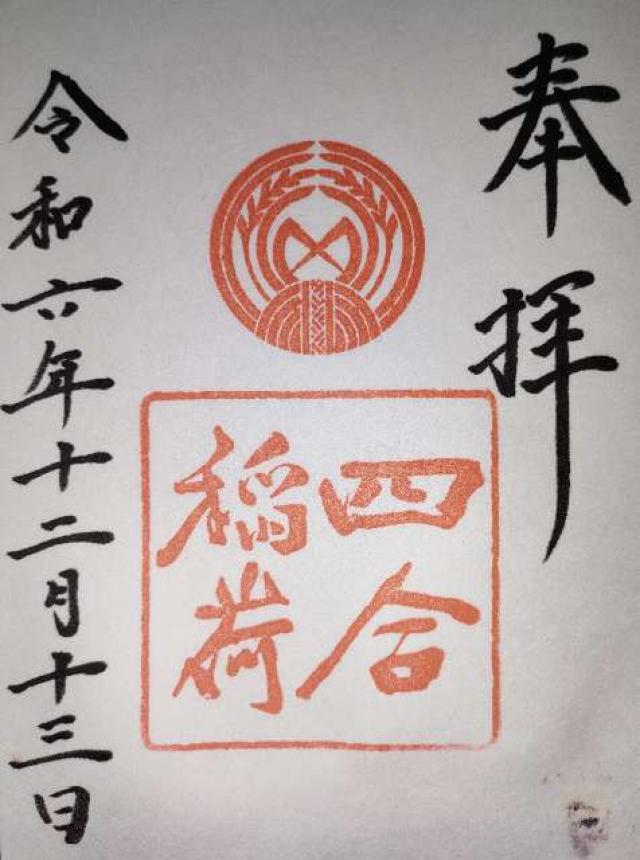 奉拝
四合
稲荷
令和六年十二月十三日